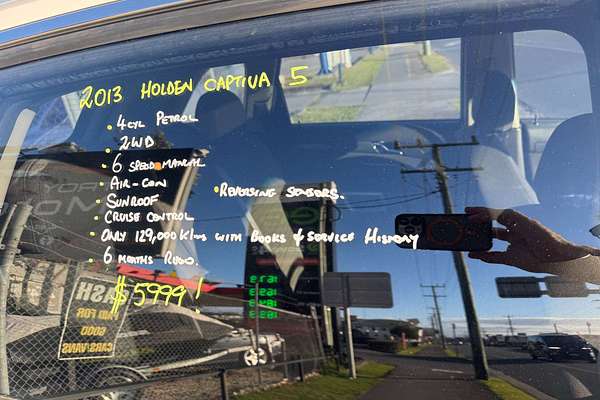 2013 HOLDEN CAPTIVA 5
• 4CYL PETROL
• 2WD
• 6 SPEED MANUAL
• AIR-CON
• REVERSING SENSORS.
• SUNROOF
• CRUISE CONTROL
• ONLY 129,000 KLMS WITH BOOKS & SERVICE HISTORY
• 6 MONTHS REGO.
$5999!
CASH
PAID FOR
GOOD
CARS/VANS